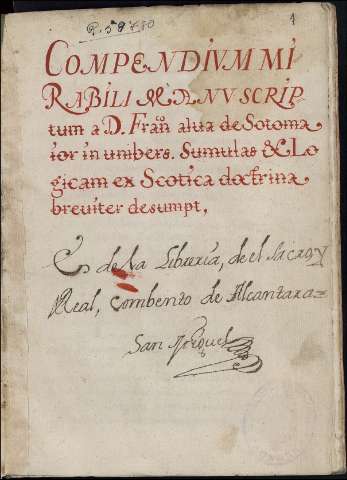 R. 59780
1
COMPENDIVM MI
RABILI MANVSCRIP-
tum a D. Fran.co alua de Sotoma
ior in unibers. Sumulas & Lo
gicam ex Scotica doctrina
breuiter desumpt,
Es de la Libreria, de el Sacro y
Real, combento de Alcantara
San